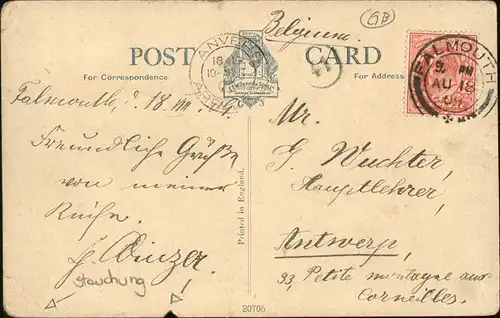 Belgium.
GB
POST CARD
For Correspondence
For Address
ANVERS
18
19-
FALMOUTH
9. PM
AU 18
09
Falmouth, d. 18. VIII.
Freundliche Grüße
von meiner
Winzer.
Stauchung
Printed in England.
Mr.
G. Wuchter,
Hauptlehrer,
Antwerp,
33, Petite montagne aux
Corneilles.
20705